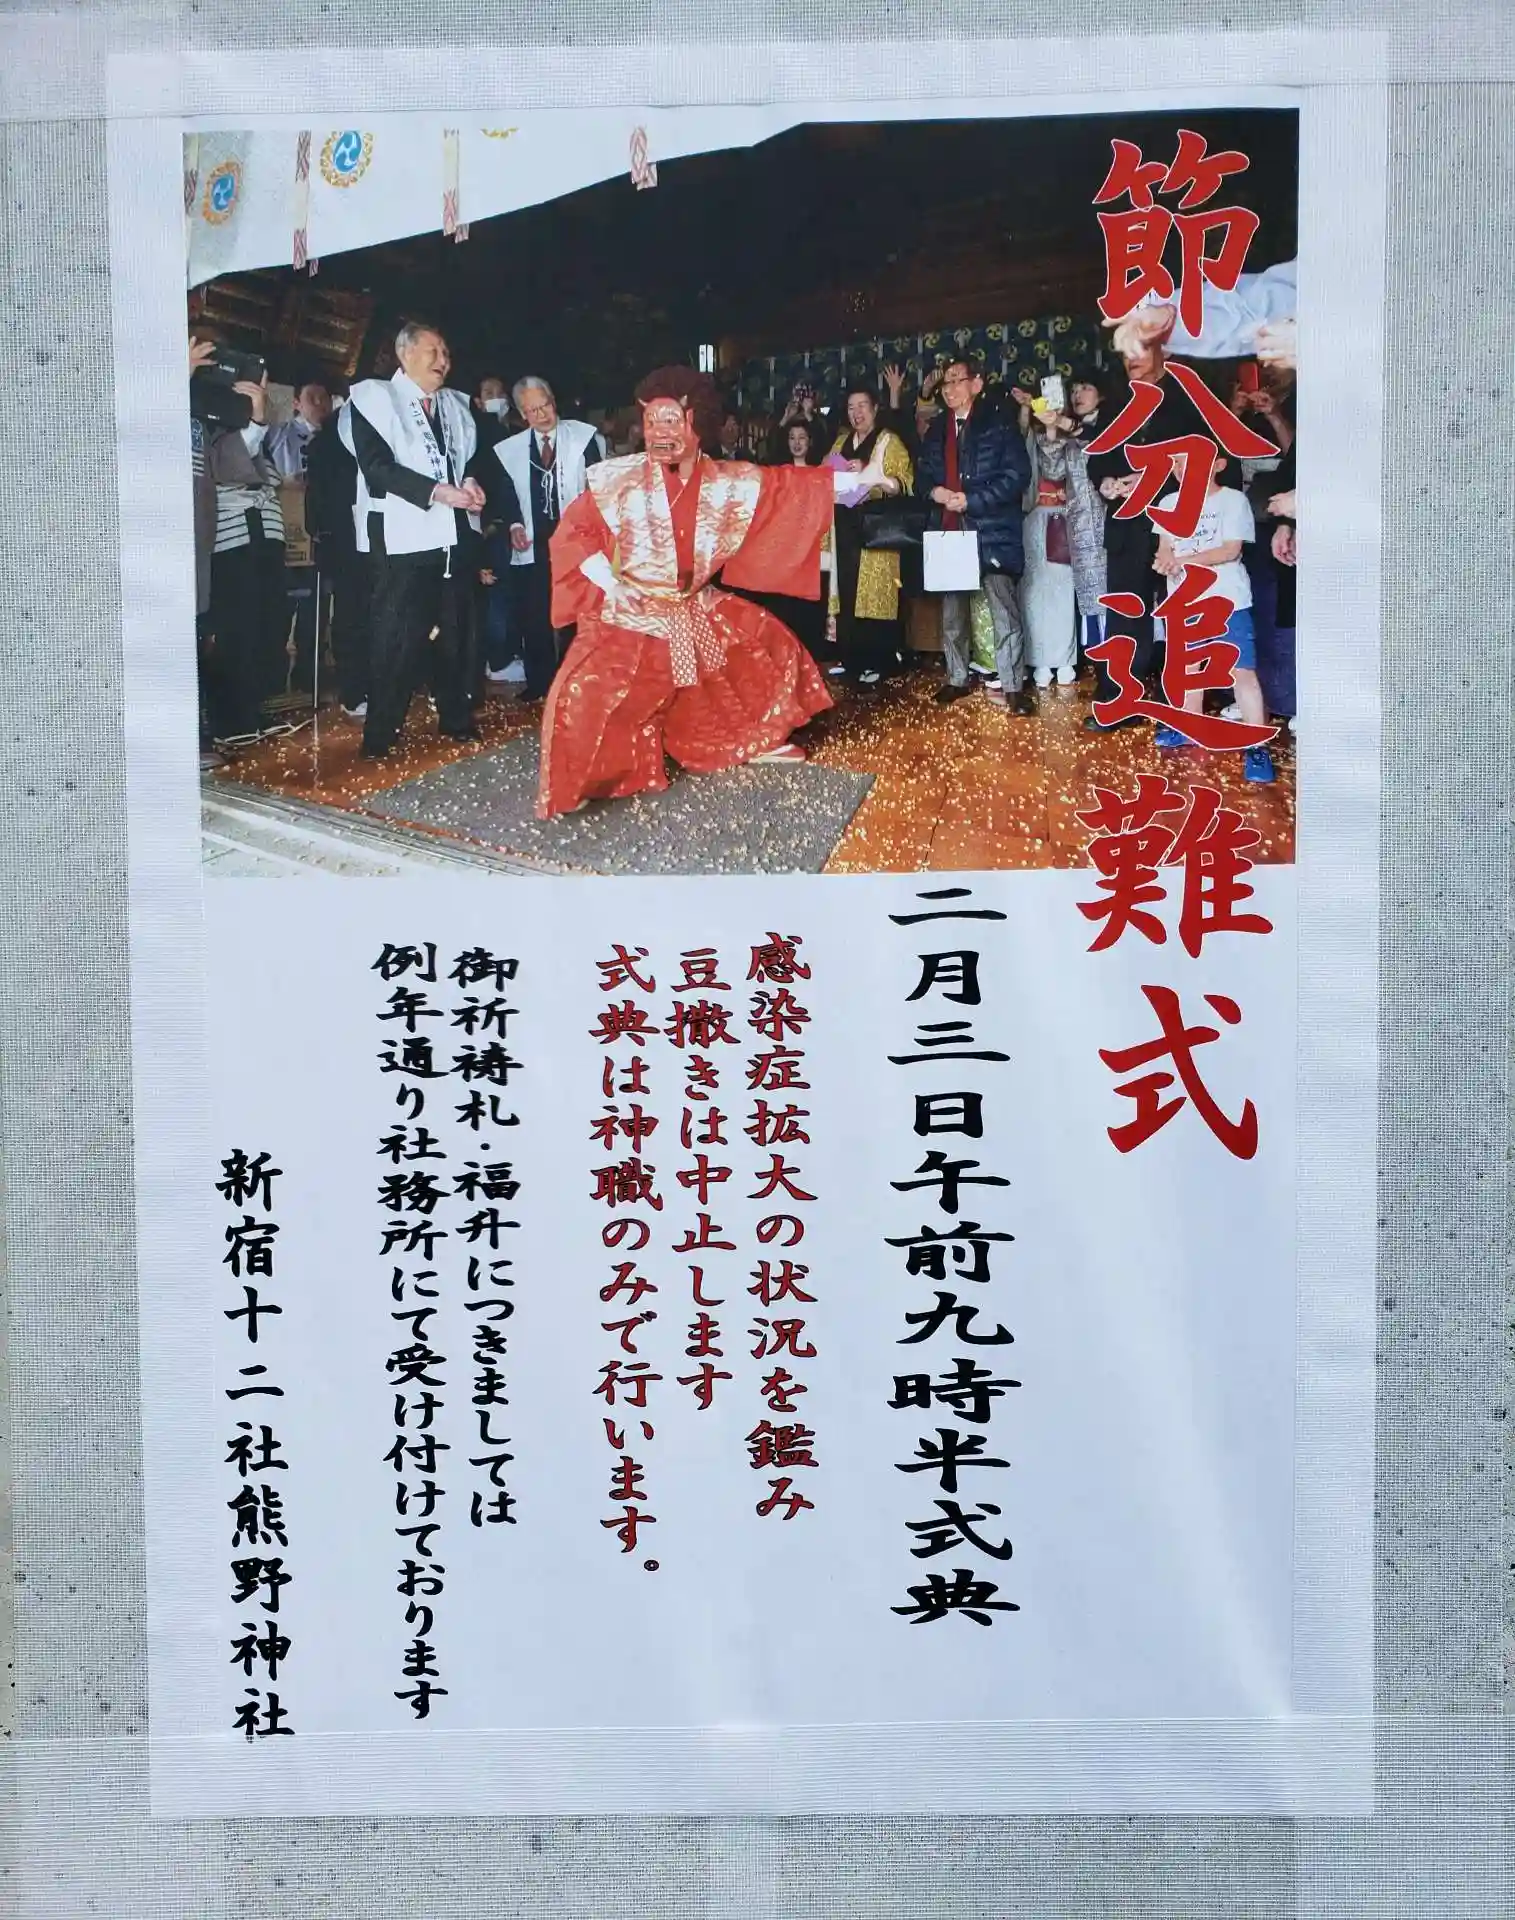 節分追難式
二月三日午前九時半式典
感染症拡大の状況を鑑み
豆撒きは中止します
式典は神職のみで行います。
御祈祷札・福升につきましては
例年通り社務所にて受け付けております
新宿十二社熊野神社
十二社 熊野神社